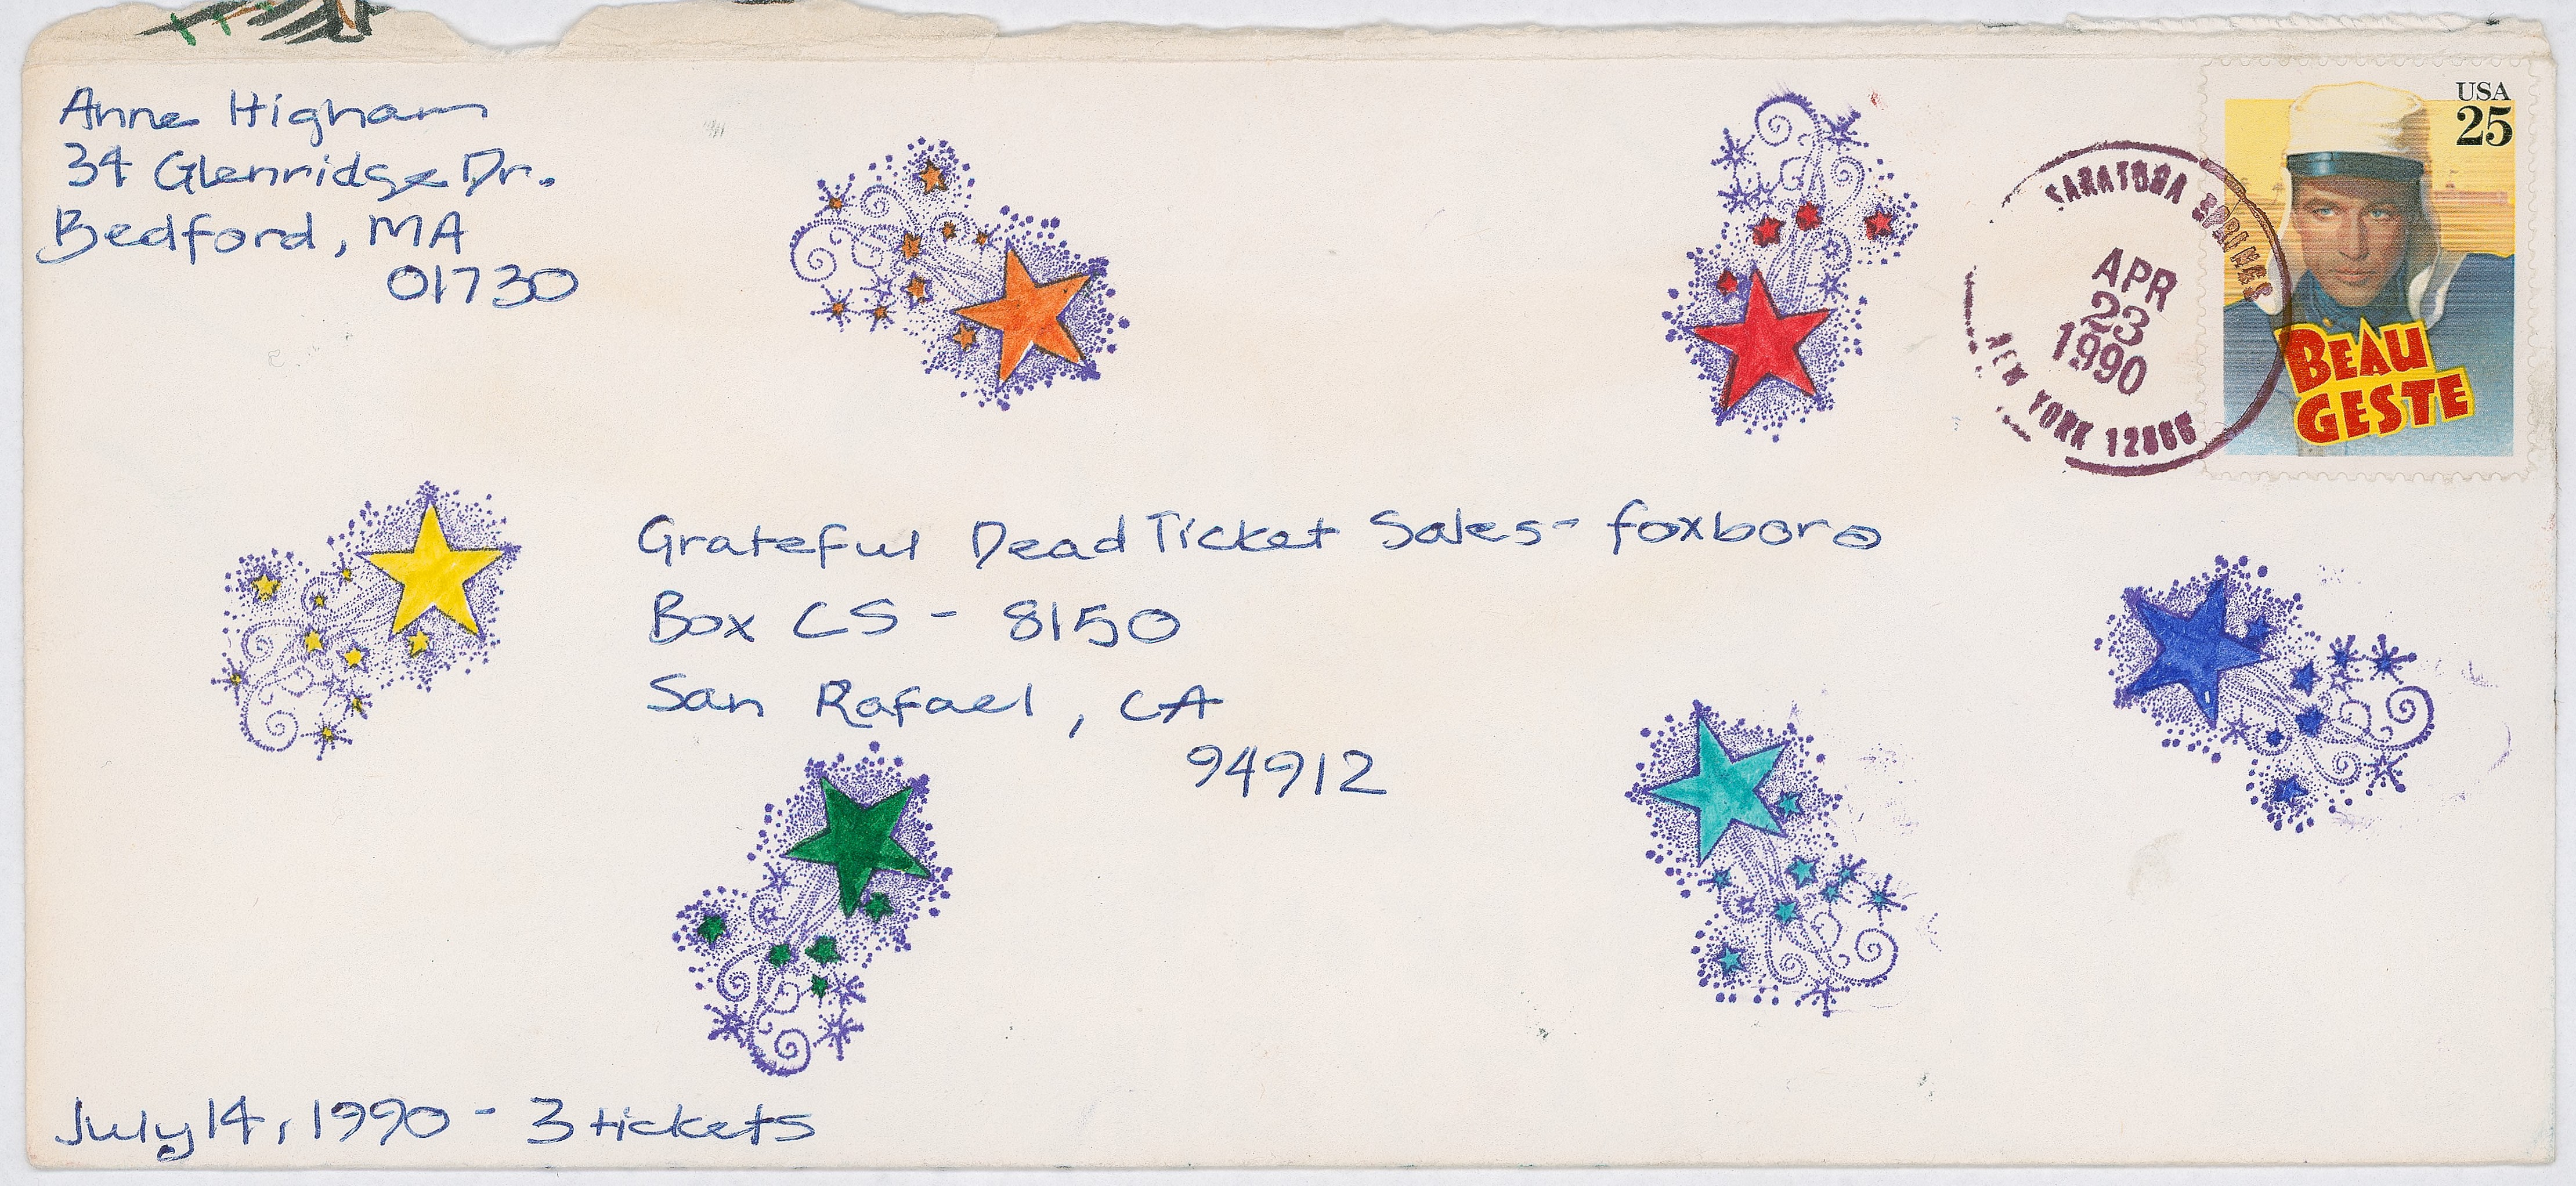 Anne Higham
34 Glenridge Dr.
Bedford, MA
01730
USA
25
SARATOGA SPRINGS
APR
23
1990
NEW YORK 12866
BEAU
GESTE
Grateful Dead Ticket Sales - foxboro
Box CS - 8150
San Rafael, CA
94912
July 14, 1990 - 3 tickets